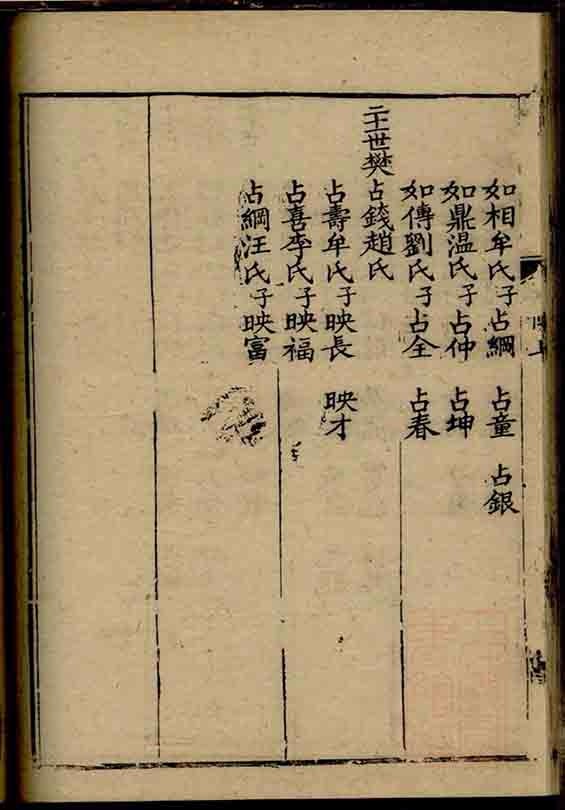 如相牟氏子占綱 占童 占銀
如鼎温氏子占仲 占坤
如傳劉氏子占全 占春
二十一世樊占錢趙氏
占壽牟氏子映長 映才
占喜李氏子映福
占綱汪氏子映富